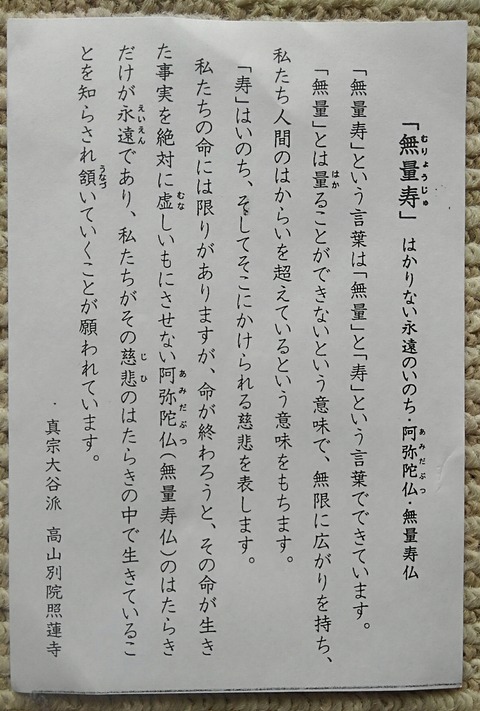 「無量寿」 はかりない永遠のいのち・阿弥陀仏・無量寿仏
「無量寿」という言葉は「無量」と「寿」という言葉でできています。
「無量」とは量ることができないという意味で、無限に広がりを持ち、
私たち人間のはからいを超えているという意味をもちます。
「寿」はいのち、そしてそこにかけられる慈悲を表します。
私たちの命には限りがありますが、命が終わろうと、その命が生き
た事実を絶対に虚しいもにさせない阿弥陀仏(無量寿仏)のはたらき
だけが永遠であり、私たちがその慈悲のはたらきの中で生きているこ
とを知らされ頷いていくことが願われています。
・真宗大谷派 高山別院照蓮寺